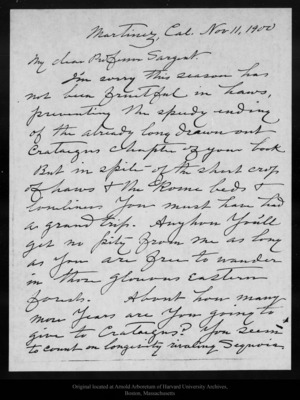 Martinez, Cal. Nov 11, 1900
My dear Professor Sargent.
I'm sorry this season has
not been fruitful in haws,
preventing the speedy ending
of the already long drawn out
Crataegus chapter of your book
But in spite of the short crop
of haws & the Rome beds &
loneliness You must have had
a grand trip. Anyhow You'll
get no pity from me as long
as you are free to wander
in those glorious eastern
forests. About how many
more Years are You going to
give to Crataegus? You seem
to count on longevity rivaling Sequoia
Original located at Arnold Arboretum of Harvard University Archives,
Boston, Massachusetts